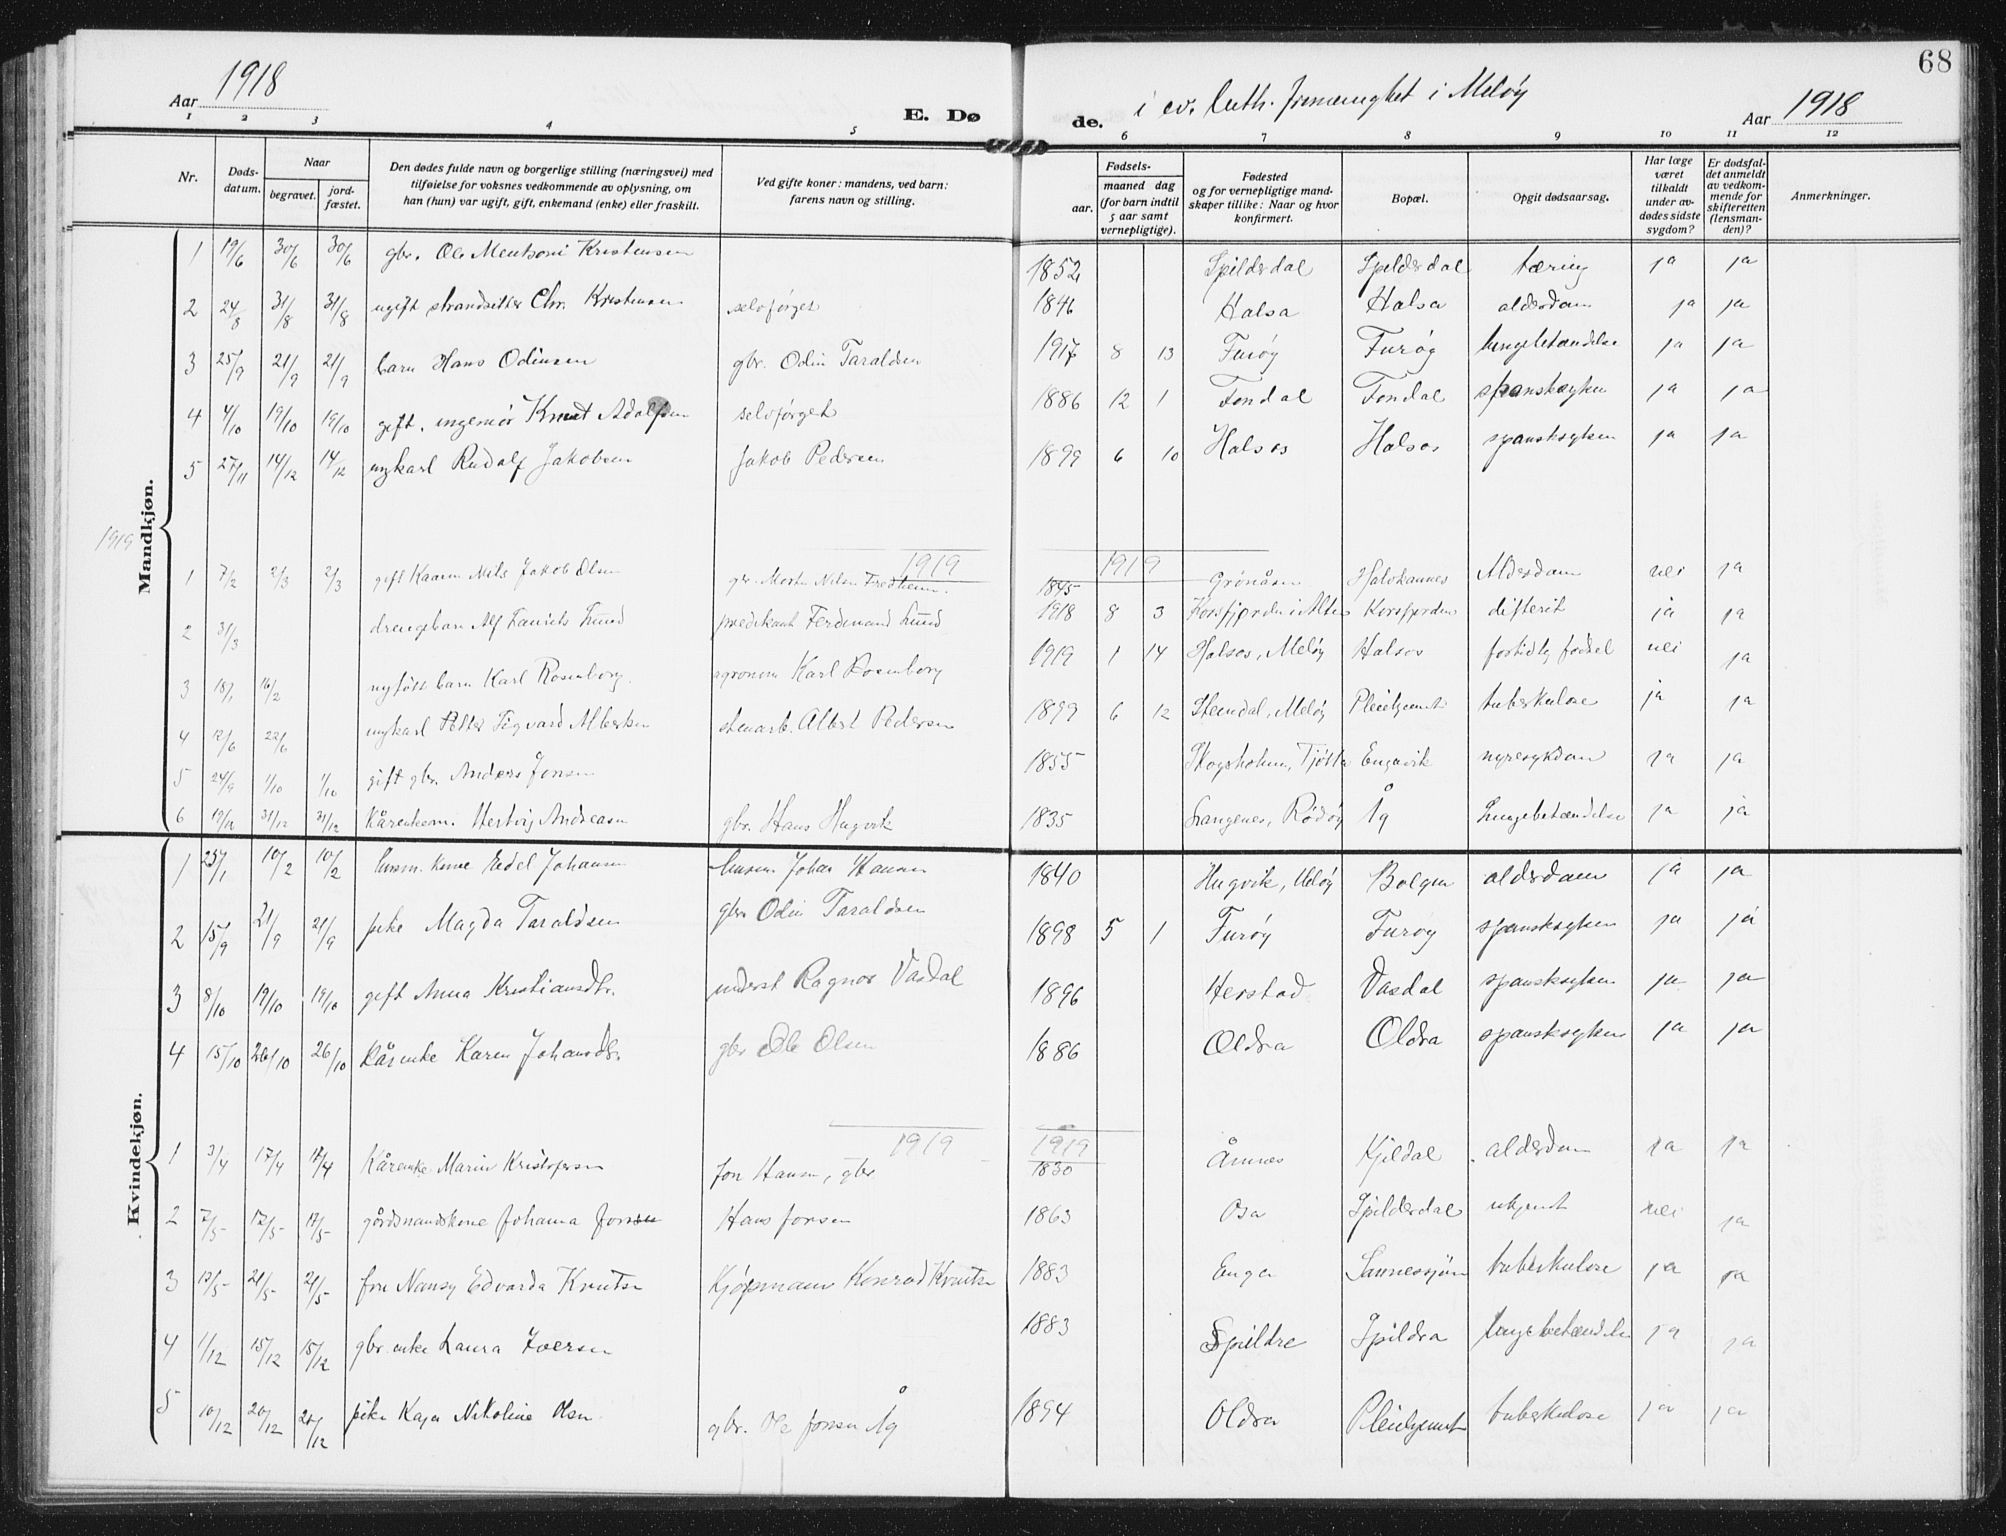 68
Aar 1918
E. Døde.
i ev. luth. frimenighet i Meløy
Aar 1918
1 2 3 4 5 6 7 8 9 10 11 12
Nr.
Døds-datum.
Naar
begravet.
jord-fæstet.
Den dødes fulde navn og borgerlige stilling (næringsvei) med
tilføielse for voksnes vedkommende av oplysning, om
han (hun) var ugift, gift, enkemand (enke) eller fraskilt.
Ved gifte koner: mandens, ved barn:
farens navn og stilling.
Fødsels-
aar.
maaned dag
(for barn indtil
5 aar samt
vernepligtige).
Fødested
og for vernepligtige mand-
skaper tillike: Naar og hvor
konfirmert.
Bopæl.
Opgit dødsaarsag.
Har læge
været
tilkaldt
under av-
dødes sidste
sygdom?
Er dødsfal-
det anmeldt
av vedkom-
mende for
skifteretten
(lensman-
den)?
Anmerkninger.
Mandkjøn.
1 19/6 30/6 30/6 gbr. Ole Mentsoni Kristensen 1852 Spilderdal Spilderdal tæring ja ja
2 24/8 31/8 31/8 ugift strandsitter Chr. Kristensen selvforget 1846 Halsa Halsa alderdom ja ja
3 25/9 21/9 21/9 barn Hans Odinsen gbr. Odin Taraldsen 1917 8 13 Furøy Furøy lungebetændelse ja ja
4 4/10 19/10 19/10 gift. ingeniør Knut Adolfsen selvforget 1886 12 1 Fondal Fondal spanskesyken ja ja
5 27/11 14/12 14/12 ungkarl Rudolf Jakobsen Jakob Pedersen 1899 6 10 Halsos Halsos spansksyken ja ja
1919
1919 1919
1 7/2 2/3 2/3 gift Kaarm. Nils Jakob Olsen gbr. Morten Nilsen Fredheim. 1845 Grönåsen Halshannes Alderdom nei ja
2 31/3 drengebarn Alf Laurits Lund predikant Ferdinand Lund 1918 8 3 Korsfjorden i Alten Korsfjorden difterit ja ja
3 18/1 16/2 nyfött barn Karl Rosenborg. agronom Karl Rosenborg 1919 1 14 Halsos, Meløy Halsos fortidlig fødsel nei ja
4 12/6 22/6 ungkarl Petter Sigvard Albertsen stenarb. Albert Pedersen 1899 6 12 Stendal, Meløy Pleiehjemmet tuberkulose ja ja
5 24/9 1/10 1/10 gift gbr. Anders Jensen 1855 Skogsholmen, Tjøtta Engavik nyresykdom ja ja
6 19/12 31/12 31/12 Kårenkem. Hertvig Andreasen gbr. Hans Hugvik 1835 Langenes, Rødøy Åg Lungebetændelse ja ja
Kvindekjøn.
1 25/1 10/2 10/2 husm. kone Eidel Johansen husm. Johan Hansen 1840 Hugvik, Meløy Bolgen alderdom ja ja
2 15/9 21/9 21/9 pike Magda Taraldsen gbr. Odin Taraldsen 1898 5 1 Furøy Furøy spansksyken ja ja
3 8/10 19/10 19/10 gift Anna Kristiansdtr. underst Ragnor Vasdal 1896 Herstad Vasdal spansksyken ja ja
4 15/10 26/10 26/10 Kårenke Karen Johansdtr. gbr Ole Olsen 1886 Oldra Oldra spansksyken ja ja
1919 1919
1 3/4 17/4 17/4 Kårenke Marie Kristofersen Jon Hansen, gbr. 1830 Åmnes Kjeldal alderdom ja ja
2 7/5 17/5 17/5 gårdsmandskone Johanna Jonsen Hans Jonsen 1863 Osa Spilderdal ukjent nei ja
3 13/5 21/5 21/5 fru Nansy Edvarda Knutsen Kjøpmann Konrad Knutsen 1883 Enga Sannessjøen tuberkulose ja ja
4 1/12 15/12 15/12 gbr. enke Laura Iversen 1883 Spildre Spildra lungebetændelse ja ja
5 10/12 20/12 20/12 pike Kaja Nikoline Olsen gbr. Ole Jonsen Åg 1894 Oldra Pleiehjemmet tuberkulose ja ja